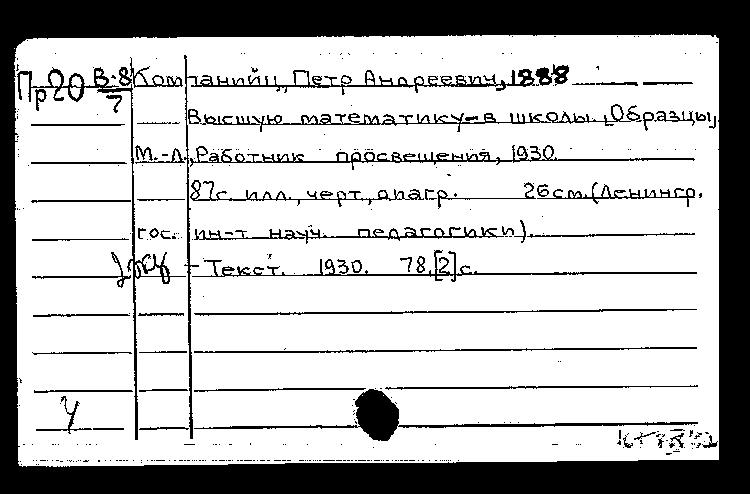 Пр20 В-8/7 Компанийц, Петр Андреевич, 1888
Высшую математику - в школы. [Образцы].
М.-Л., Работник просвещения, 1930.
87с. илл., черт., диагр. 26см. (Ленингр.
гос. ин-т науч. педагогики).
- Текст. 1930. 78,[2]с.